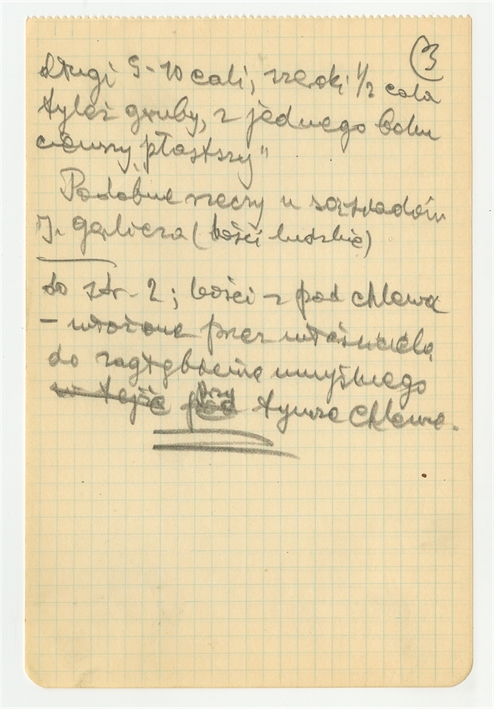 ③
długi 9-10 cali, szeroki 1/2 cala
tyleż gruby, z jednego boku
ciemny, płastszy"
Podobne rzeczy u sąsiadów
J. Garlicza (kości ludzkie)
do str. 2; kości z pod chlewa
- włożone przez właściciela
do zagłębienia umyślnego
w tejże przy tymże chlewie.